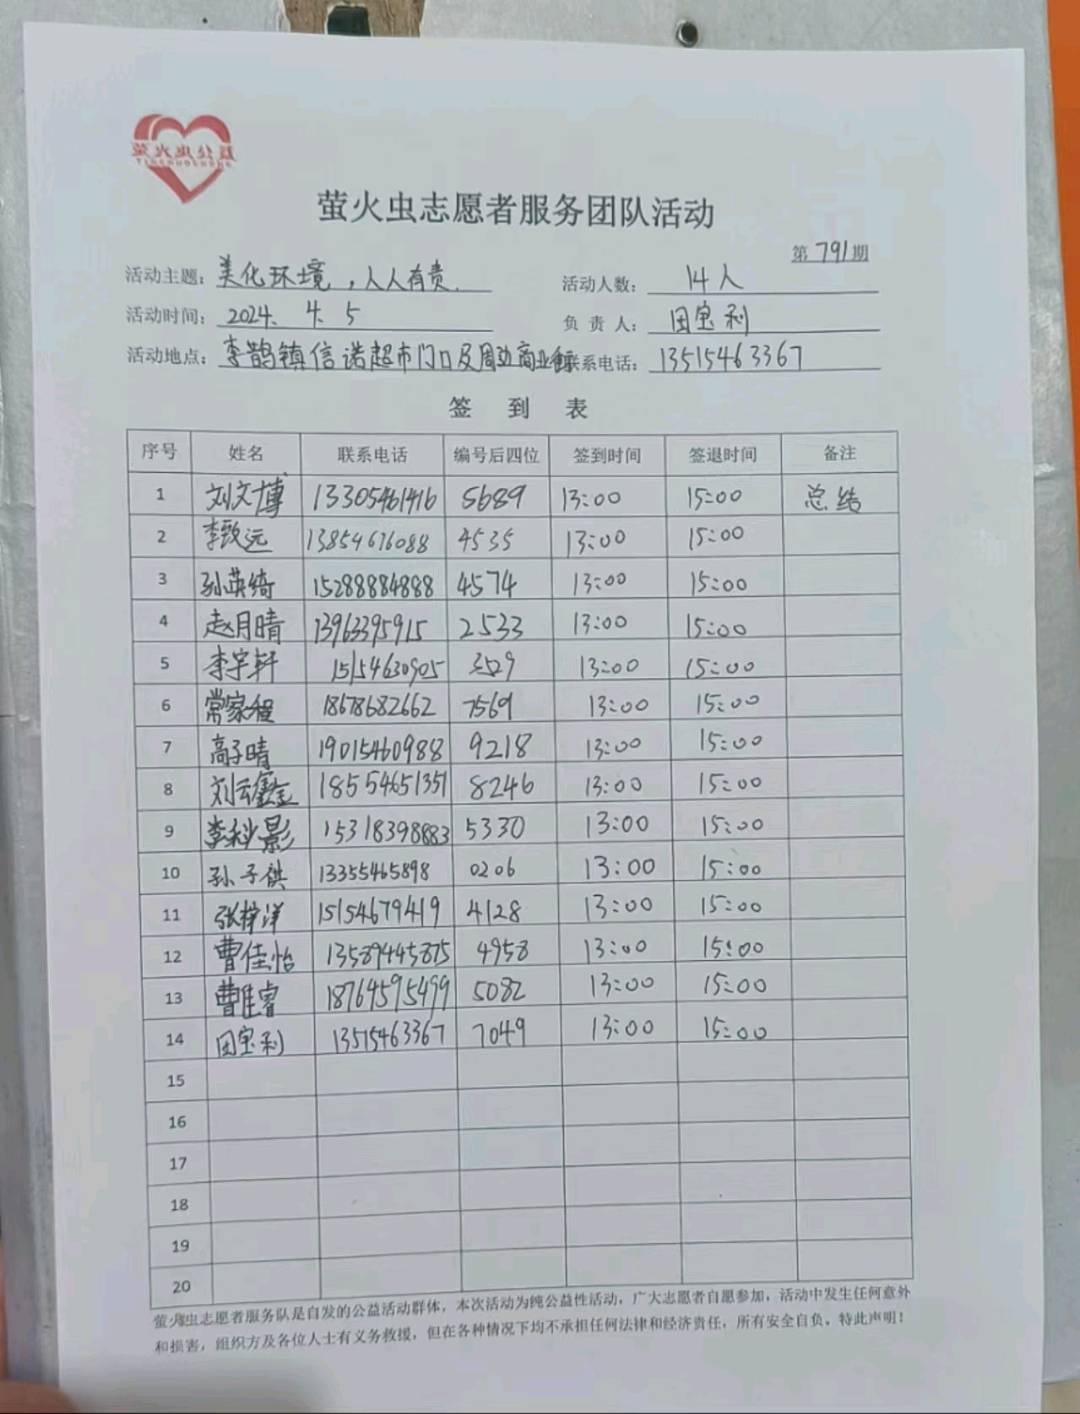 萤火虫公益
萤火虫志愿者服务团队活动
第 791 期
活动主题：美化环境，人人有责. 活动人数：14人
活动时间：2024. 4. 5 负 责 人：田宝利
活动地点：李鹊镇信诺超市门口及周边商业街 联系电话：13515463367
签 到 表
序号 姓名 联系电话 编号后四位 签到时间 签退时间 备注
1 刘文博 13305461416 5689 13:00 15:00 总结
2 李致远 13854676088 4535 13:00 15:00
3 孙英绮 15288884888 4574 13:00 15:00
4 赵月晴 13963395915 2533 13:00 15:00
5 李宇轩 15154630905 3529 13:00 15:00
6 常家程 18678682662 7569 13:00 15:00
7 高子晴 19015460988 9218 13:00 15:00
8 刘云鑫 18554651351 8246 13:00 15:00
9 李科影 15318398883 5330 13:00 15:00
10 孙子供 13355465898 0206 13:00 15:00
11 张梓洋 15154679419 4128 13:00 15:00
12 曹佳怡 13589445875 4958 13:00 15:00
13 曹佳睿 18764595499 5082 13:00 15:00
14 田宝利 13515463367 7049 13:00 15:00
15
16
17
18
19
20
萤火虫志愿者服务队是自发的公益活动群体，本次活动为纯公益性活动，广大志愿者自愿参加，活动中发生任何意外
和损害，组织方及各位人士有义务救援，但在各种情况下均不承担任何法律和经济责任，所有安全自负，特此声明！